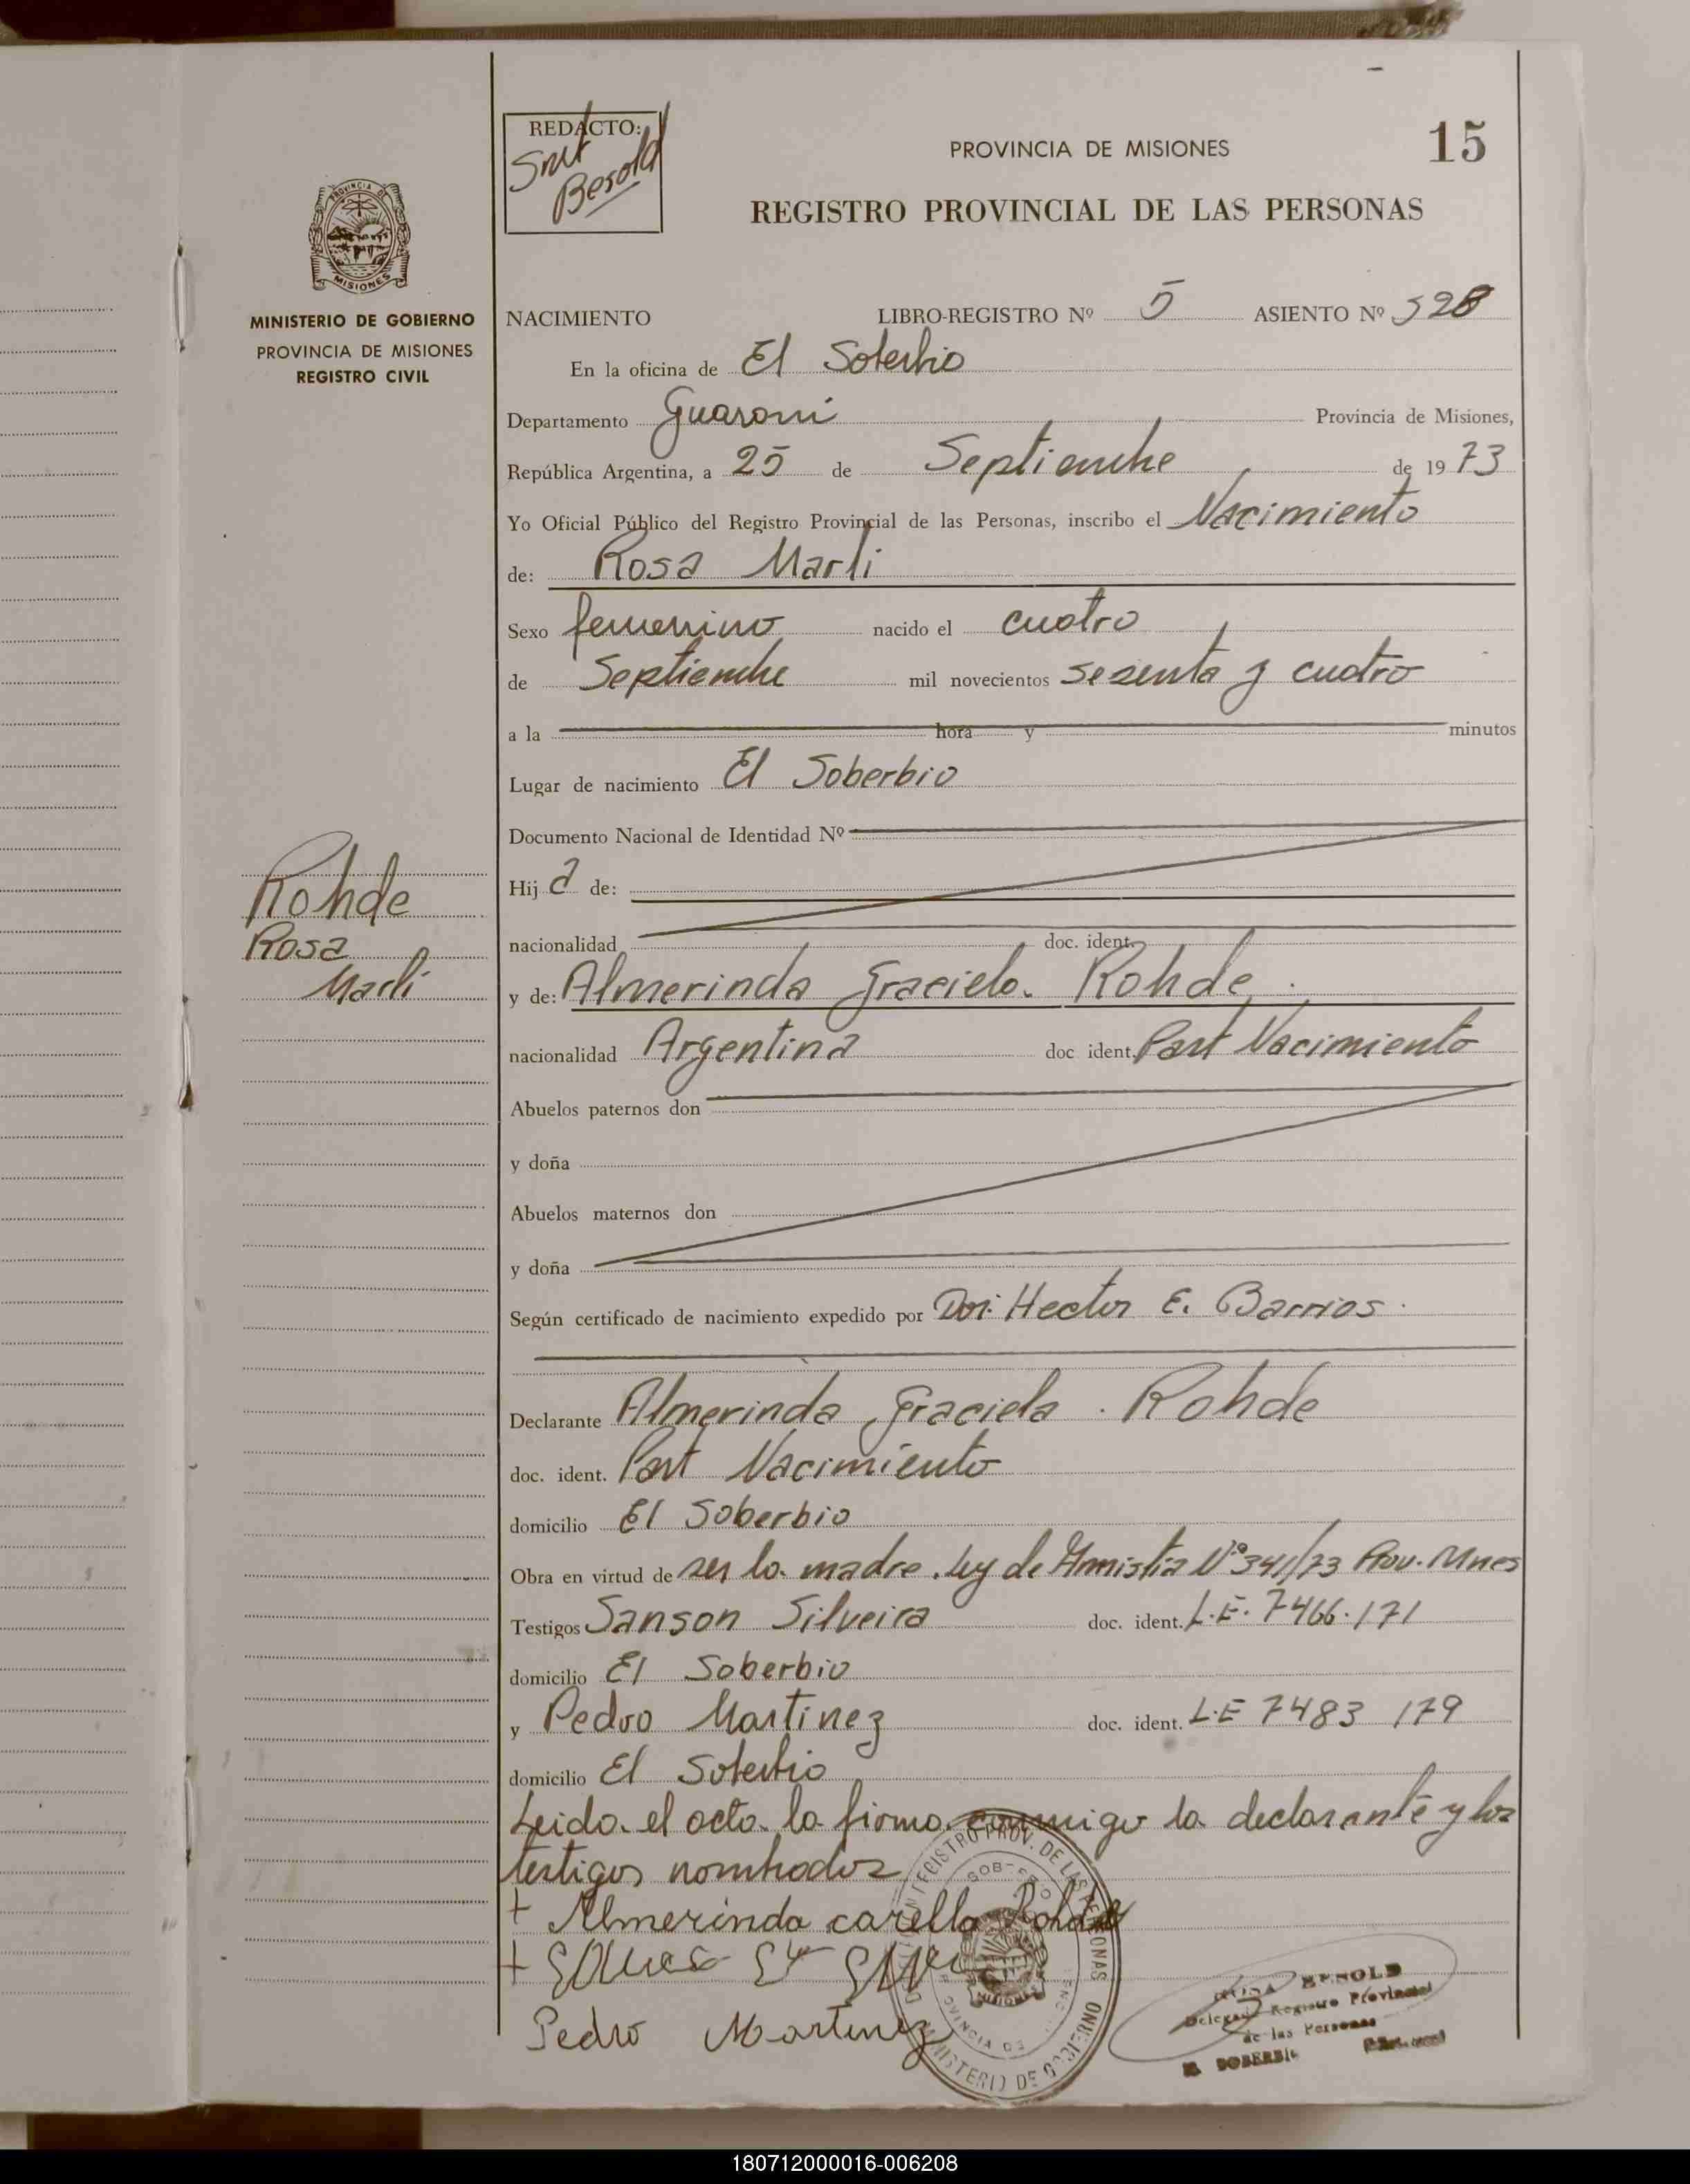 REDACTO:
Besold
PROVINCIA DE MISIONES
15
REGISTRO PROVINCIAL DE LAS PERSONAS
PROVINCIA DE
MISIONES
MINISTERIO DE GOBIERNO
PROVINCIA DE MISIONES
REGISTRO CIVIL
NACIMIENTO LIBRO-REGISTRO Nº 5 ASIENTO Nº 528
En la oficina de El Soberbio
Departamento Guarani Provincia de Misiones,
República Argentina, a 25 de Septiembre de 1973
Yo Oficial Público del Registro Provincial de las Personas, inscribo el Nacimiento
de: Rosa Marli
Sexo femenino nacido el cuatro
de Septiembre mil novecientos sesenta y cuatro
a la hora y minutos
Lugar de nacimiento El Soberbio
Documento Nacional de Identidad Nº
Hija de:
nacionalidad doc. ident.
Rohde
Rosa
Marli
y de: Almerinda Graciela Rohde.
nacionalidad Argentina doc ident. Part Nacimiento
Abuelos paternos don
y doña
Abuelos maternos don
y doña
Según certificado de nacimiento expedido por Dor: Hector E. Barrios.
Declarante Almerinda Graciela. Rohde
doc. ident. Part Nacimiento
domicilio El Soberbio
Obra en virtud de ser la madre. Ley de Amistia Nº 341/73 Prov. Mnes
Testigos Sanson Silveira doc. ident. L.E. 7466.171
domicilio El Soberbio
y Pedro Martinez doc. ident. L.E 7483 179
domicilio El Soberbio
Leida el acta la firma conmigo la declarante y los
testigos nombrados
+ Almerinda carella Rohde
Pedro Martinez
REGISTRO PROV. DE LAS PERSONAS
MINISTERIO DE GOBIERNO
MISIONES
BESOLD
Delegado Registro Provincial
de las Personas
EL SOBERBIO
180712000016-006208